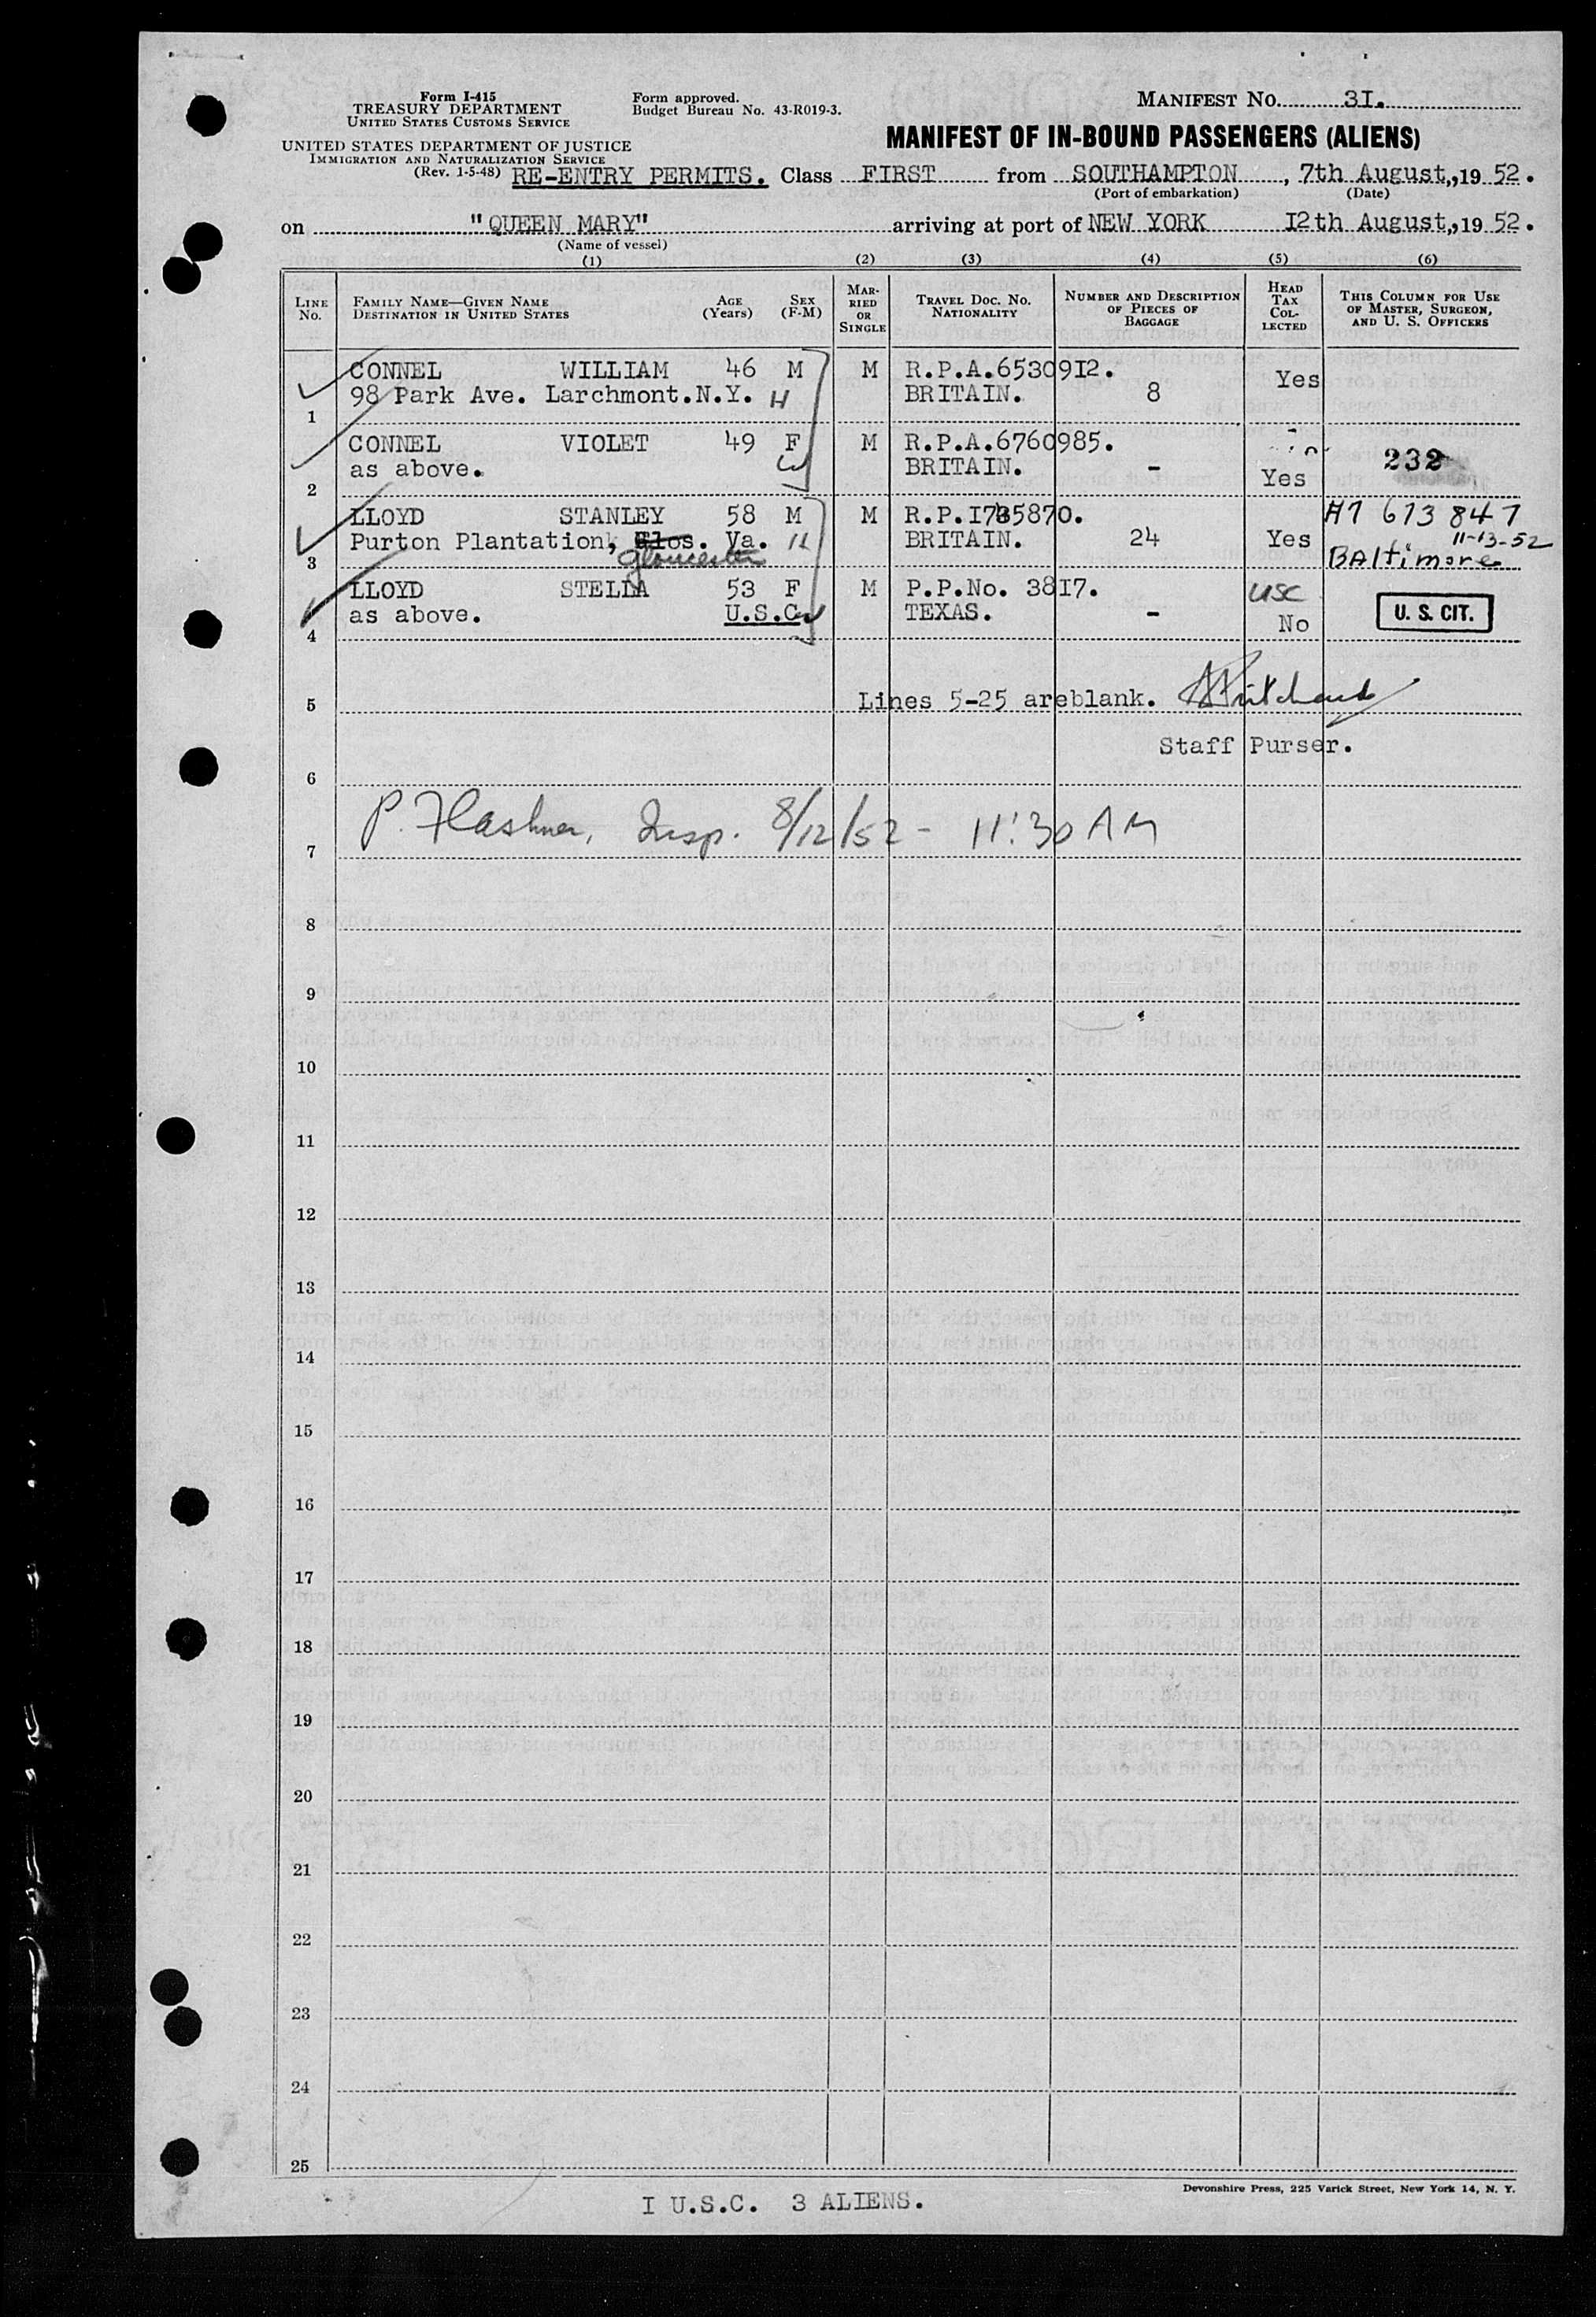 Form I-415
TREASURY DEPARTMENT
UNITED STATES CUSTOMS SERVICE
UNITED STATES DEPARTMENT OF JUSTICE
IMMIGRATION AND NATURALIZATION SERVICE
(Rev. 1-5-48)
Form approved.
Budget Bureau No. 43-R019-3.
MANIFEST NO. 3I.
MANIFEST OF IN-BOUND PASSENGERS (ALIENS)
RE-ENTRY PERMITS. Class FIRST from SOUTHAMPTON, 7th August,, 19 52.
(Port of embarkation) (Date)
on "QUEEN MARY" arriving at port of NEW YORK I2th August,, 19 52.
(Name of vessel)
(1) (2) (3) (4) (5) (6)
LINE NO. FAMILY NAME—GIVEN NAME DESTINATION IN UNITED STATES AGE (Years) SEX (F-M) MARRIED OR SINGLE TRAVEL DOC. NO. NATIONALITY NUMBER AND DESCRIPTION OF PIECES OF BAGGAGE HEAD TAX COLLECTED THIS COLUMN FOR USE OF MASTER, SURGEON, AND U. S. OFFICERS
CONNEL WILLIAM 46 M M R.P.A.65309I2. Yes
1 98 Park Ave. Larchmont.N.Y. H BRITAIN. 8
CONNEL VIOLET 49 F M R.P.A.6760985. 232
2 as above. W BRITAIN. - Yes
LLOYD STANLEY 58 M M R.P.I7 5870. A7 673 847
3 Purton Plantation, Glos. Va. H BRITAIN. 24 Yes 11-13-52
Gloucester Baltimore
LLOYD STELLA 53 F M P.P.No. 38I7. USC
4 as above. U.S.C. W TEXAS. - No U. S. CIT.
5 Lines 5-25 areblank. Pritchard
Staff Purser.
6
7 P. Flashner, Insp. 8/12/52 - 11:30 AM
8
9
10
11
12
13
14
15
16
17
18
19
20
21
22
23
24
25
Devonshire Press, 225 Varick Street, New York 14, N. Y.
I U.S.C. 3 ALIENS.